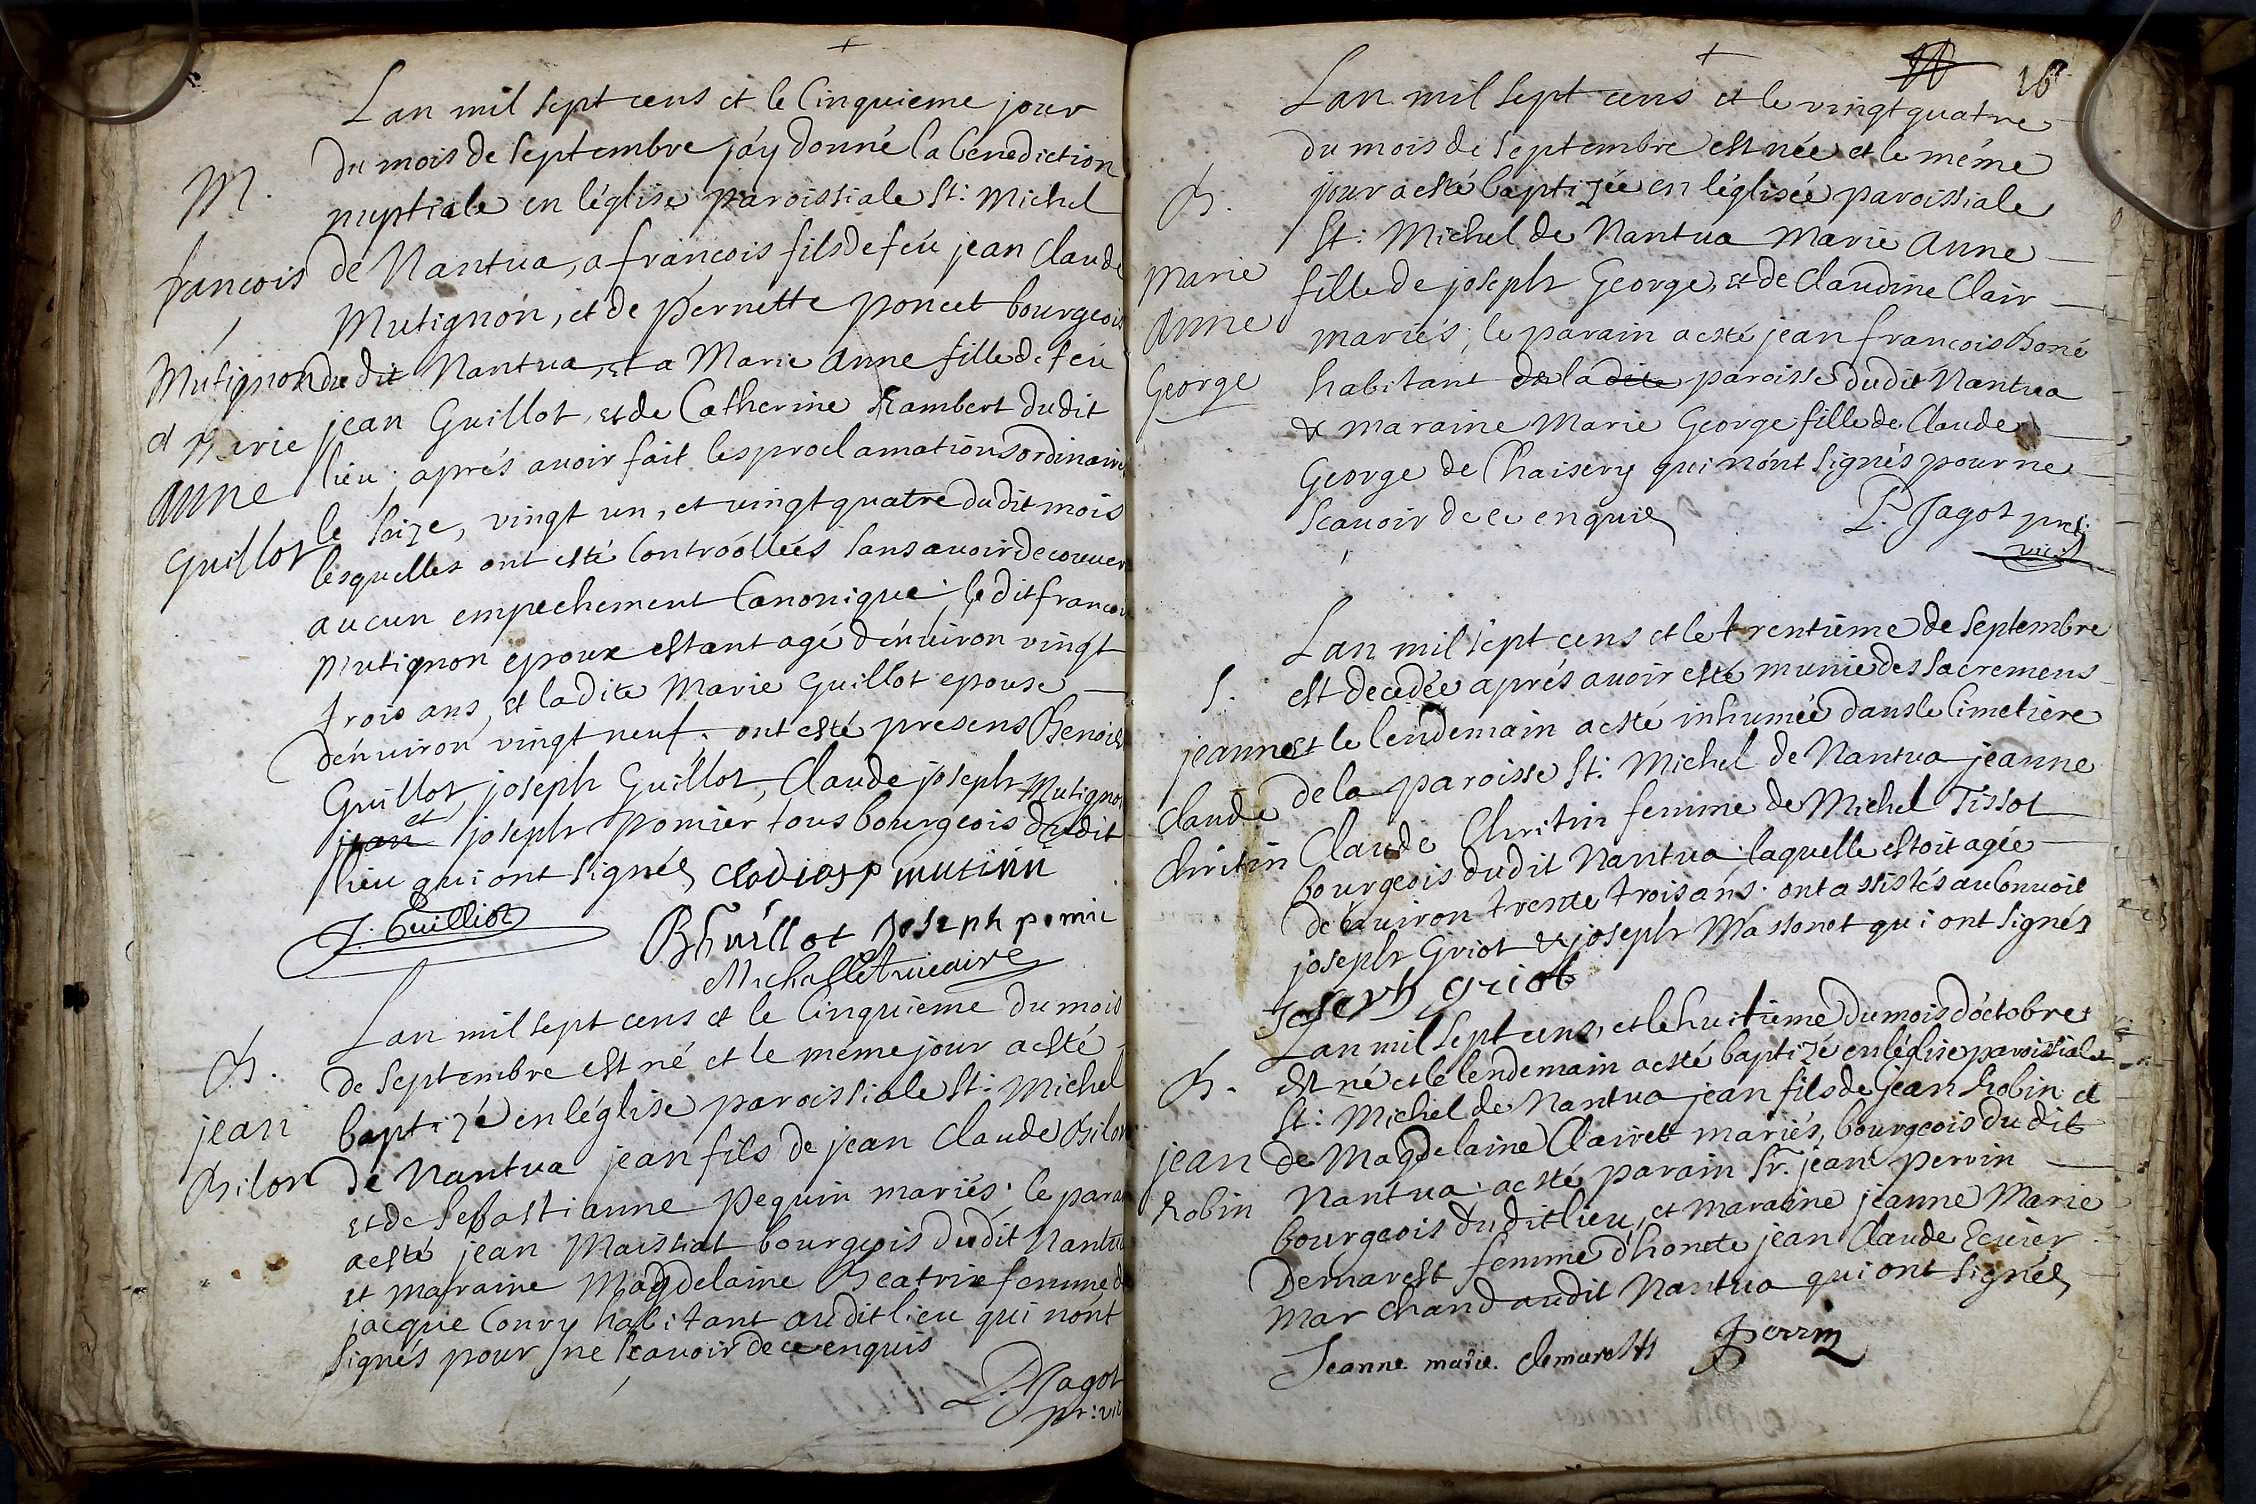 Lan mil sept cens et le Cinquieme jour
du mois de septembre jáy donné la benediction
M.
nuptiale en léglise paroissiale St: Michel
francois
de Nantua, a francois fils de feu jean Claude
Mutignon, et de pernette poncet bourgeois
Mutignon
du dit Nantua, et a Marie Anne fille de feu
et Marie
jean Guillot, et de Catherine Rambert dudit
Anne
lieu; aprés auoir fait les proclamations ordinaires
Guillot
le seize, vingt un, et vingt quatre dudit mois
lesquelles ont esté Controollées sans auoir decouuer
aucun empechement Canonique; ledit francois
Mutignon epoux estant agé dénuiron vingt
trois ans, et ladite Marie Guillot epouse
dénuiron vingt neuf. ont esté presens Benoist
Guillot, joseph Guillot, Claude joseph Mutignon
jean et joseph pomier tous bourgeois dudit
lieu qui ont signés Clodiosp mutinin
J. Guilliot
B Guillot Joseph pomie
Michallet vicaire
Lan mil sept cens et le Cinquieme du mois
B.
de Septembre est né et le méme jour a esté
jean
baptizé en léglise paroissiale St: Michel
Bilon
de Nantua jean fils de jean Claude Bilon
et de Sebastianne Pequin mariés. le parain
a esté jean Maissiat bourgeois dudit Nantua
et maraine Magdelaine Beatrix femme de
jacque Conry habitant audit lieu qui nónt
signés pour ne scauoir de ce enquis
P. Jagot
pr: vic
16
Lan mil sept cens et le vingt quatre
du mois de septembre est née et le méme
B.
jour a esté baptizée en léglisée paroissiale
St: Michel de Nantua Marie Anne
Marie
fille de joseph George, et de Claudine Clair
Anne
mariés; le parain a esté jean francois Boné
George
habitant de la dite paroisse dudit Nantua
& maraine Marie George fille de Claude
George de Chaisery qui nónt signés pour ne
scauoir de ce enquis
P. Jagot pret:
vic:
Lan mil sept cens et le trentiéme de septembre
S.
est decedée aprés auoir esté munie des sacremens
jeanne
et le lendemain a esté inhumée dans le Cimetiere
Claude
de la paroisse St: Michel de Nantua jeanne
Chritin
Claude Chritin femme de Michel Tissot
bourgeois dudit Nantua laquelle estoit agée
dénuiron trente trois ans. ont assistés au Conuoi
joseph Griot & joseph Massonet qui ont signés
Joseph griot
Lan mil sept cens, et le huitiéme du mois d'octobre
B.
est né et le lendemain a esté baptizé en léglise paroissiale
St: Michel de Nantua jean fils de jean Robin et
jean
de Magdelaine Clairet mariés, bourgeois du dit
Robin
Nantua. a esté parain Sr. jean perrin
bourgeois dudit lieu, et maraine jeanne Marie
Demarest femme d'honete jean Claude Ecuier
Marchand audit Nantua qui ont signés
Jeanne marie demarest Perrin